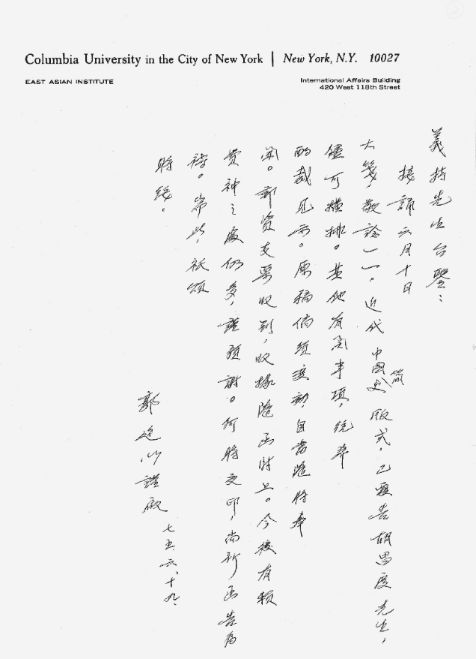 Columbia University in the City of New York | New York, N.Y. 10027
EAST ASIAN INSTITUTE
International Affairs Building
420 West 118th Street
義持先生台鑒:
接誦六月十日
大箋,敬諗一一。近代中國史版式,已覆告胡昌度先生,
僅可橫排。其他有關事項,統希
酌裁見示。原稿倘須更動,自當隨時奉
聞。郵資支票收到,收據隨函附上。今後有賴
費神之處仍多,謹預謝。何時交印,尚祈函告為
禱。耑此,祇頌
時綏。
郭廷以謹啟
七五、六、十九、